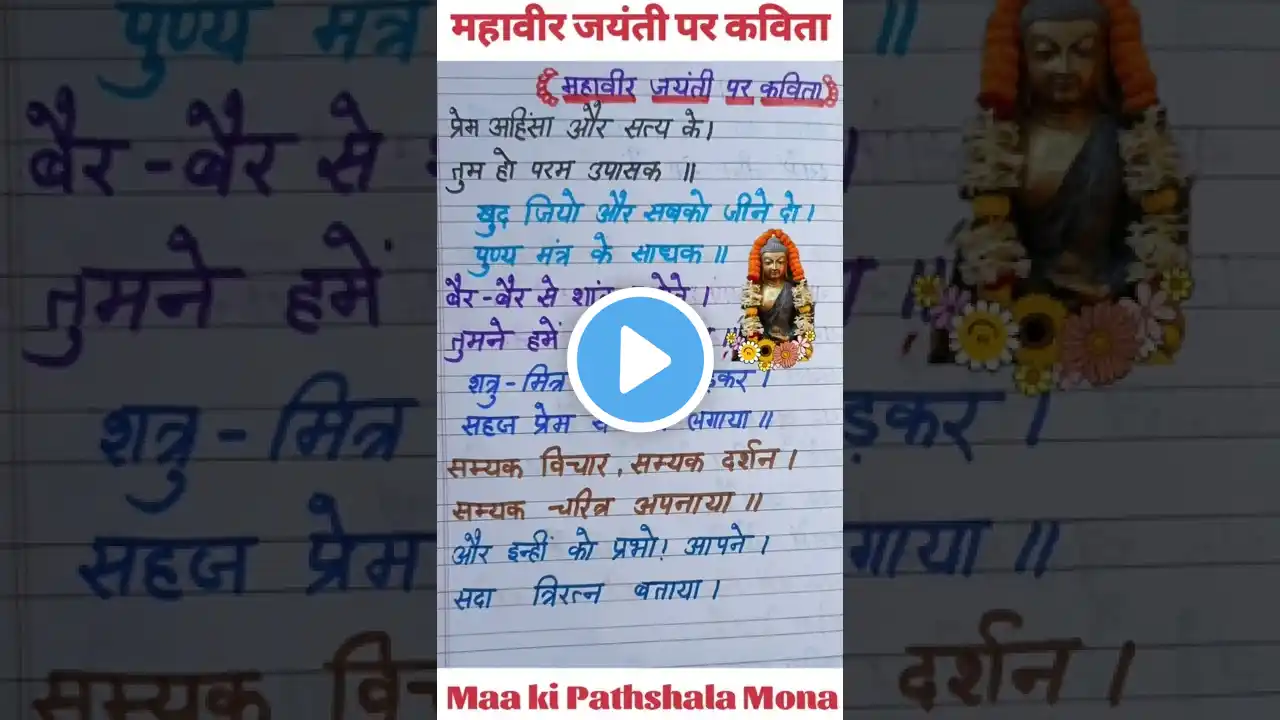 महावीर जयंती पर कविता
महावीर जयंती पर कविता
प्रेम अहिंसा और सत्य के।
तुम हो परम उपासक ॥
खुद जियो और सबको जीने दो।
पुण्य मंत्र के साधक ॥
बैर-बैर से
तुमने हमें
शत्रु-मित्र
सहज प्रेम लगाया ॥
सम्यक विचार, सम्यक दर्शन।
सम्यक चरित्र अपनाया ॥
और इन्हीं को प्रभो! आपने।
सदा त्रिरत्न बताया।
Maa ki Pathshala Mona